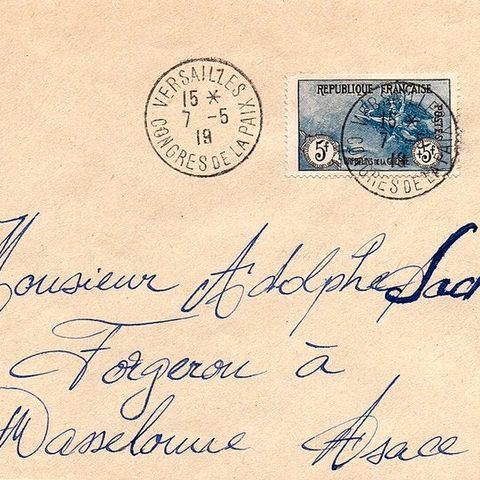 VERSAILLES
15 *
7 -5
19
CONGRES DE LA PAIX
REPUBLIQUE FRANÇAISE
POSTES
5F
ORPHELINS DE LA GUERRE
+5F
VERSAILLES
7
19
CONGRES DE LA PAIX
Monsieur Adolphe Sad
Forgeron à
Wasselonne Asace